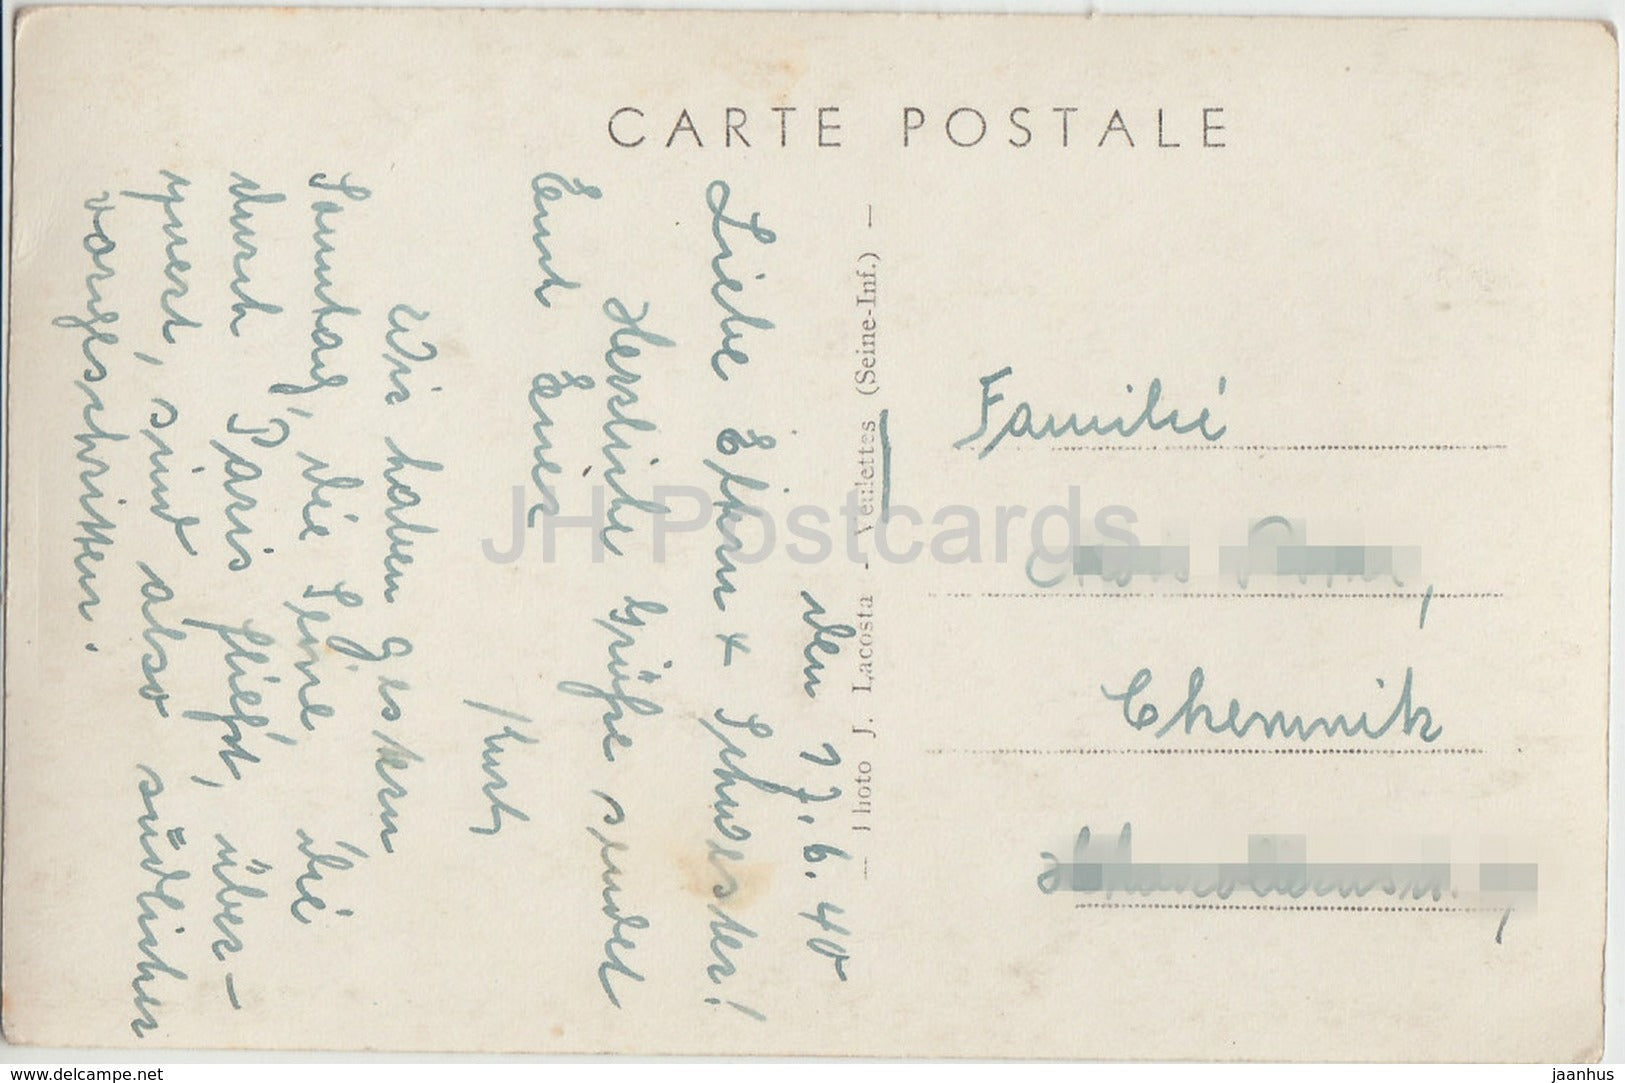 CARTE POSTALE
den 17.6.40
Liebe Eltern + Schwester!
Herzliche Grüße sendet
Euch Euer
Kurt
Wir haben gestern
Sonntag, die Seine, die
durch Paris fließt, über-
quert, sind also südlicher
vorgeschritten.
— Photo J. Lacosta - Veulettes (Seine-Inf.) —
Familie
Chemnitz
JH Postcards
www.delcampe.net
jaanhus